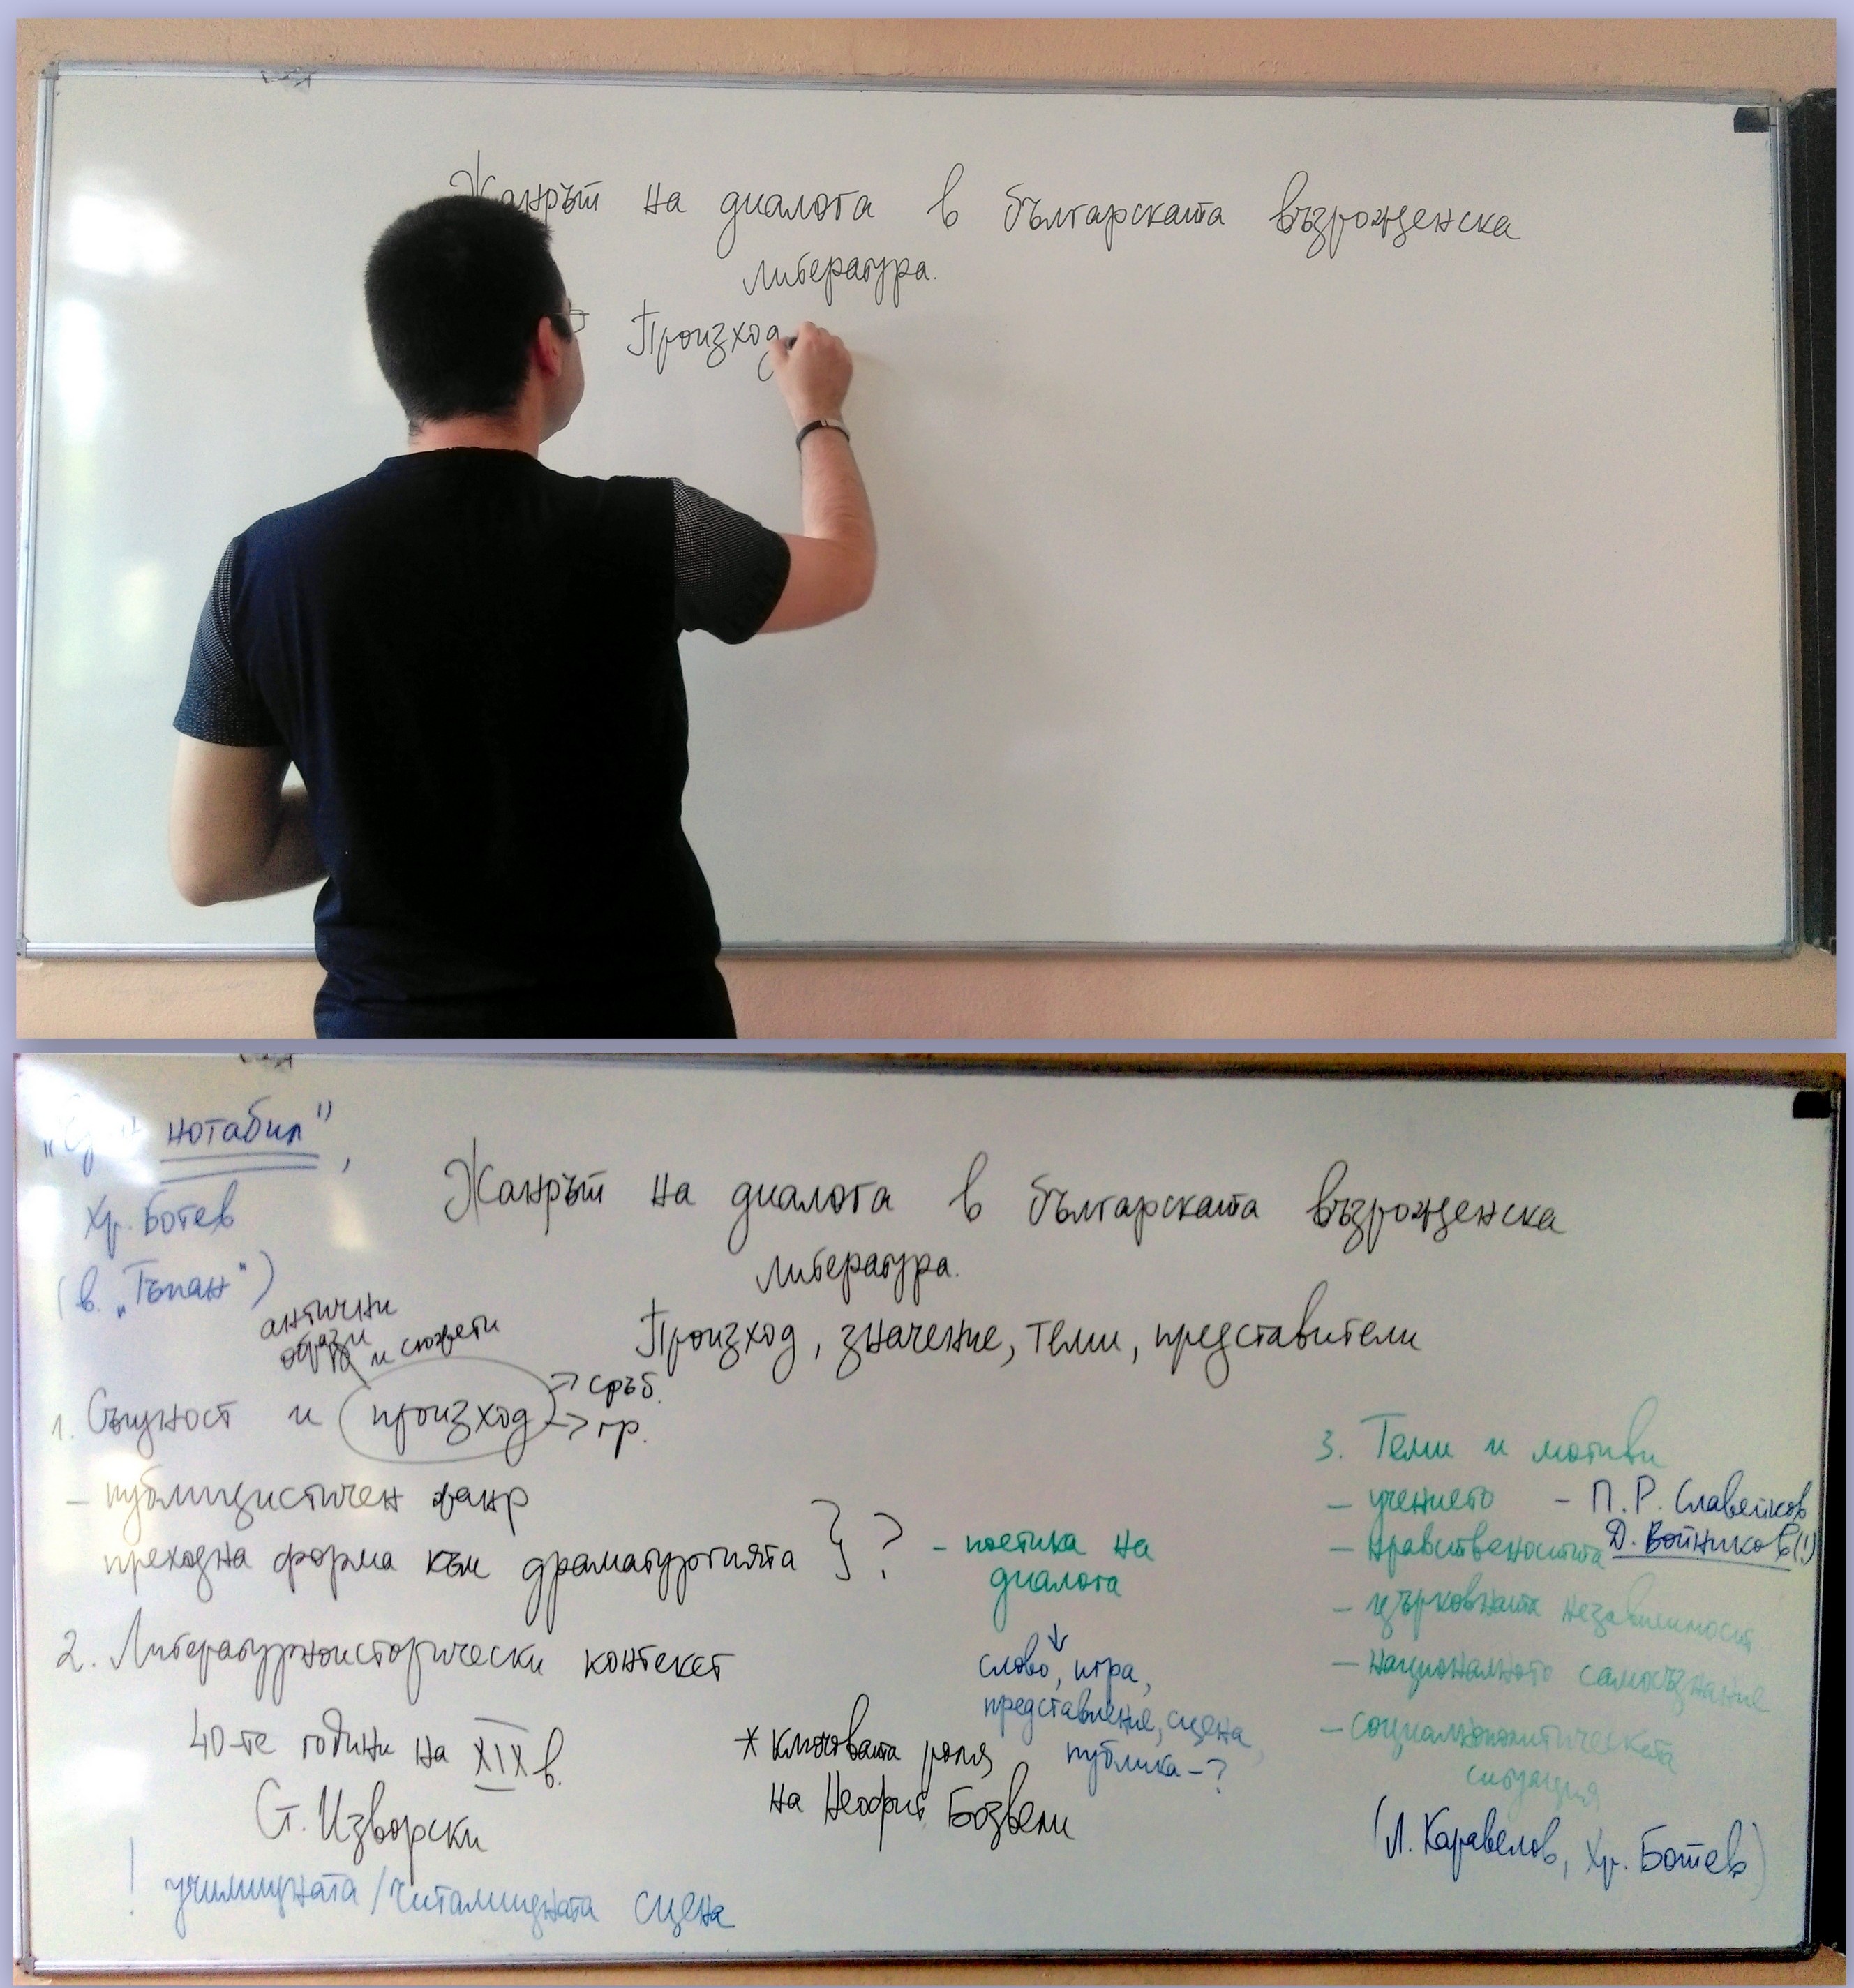 Жанрът на диалога в българската възрожденска
литература.
Произход
„Един нотабил",
Хр. Ботев
(в. „Тъпан")
Жанрът на диалога в българската възрожденска
литература.
Произход, значение, теми, представители
антични
образи и сюжети
1. Същност и произход → сръб.
→ гр.
- публицистичен жанр
преходна форма към драматургията } ?
- поетика на
диалога
↓
слово, игра,
представление, сцена,
публика - ?
2. Литературноисторически контекст
40-те години на XIX в.
Ст. Изворски
* ключовата роля
на Неофит Бозвели
! училищната/читалищната сцена
3. Теми и мотиви
- учението - П. Р. Славейков
- нравствеността Д. Войников (!)
- църковната независимост
- националното самосъзнание
- социалнополитическата
ситуация
(Л. Каравелов, Хр. Ботев)